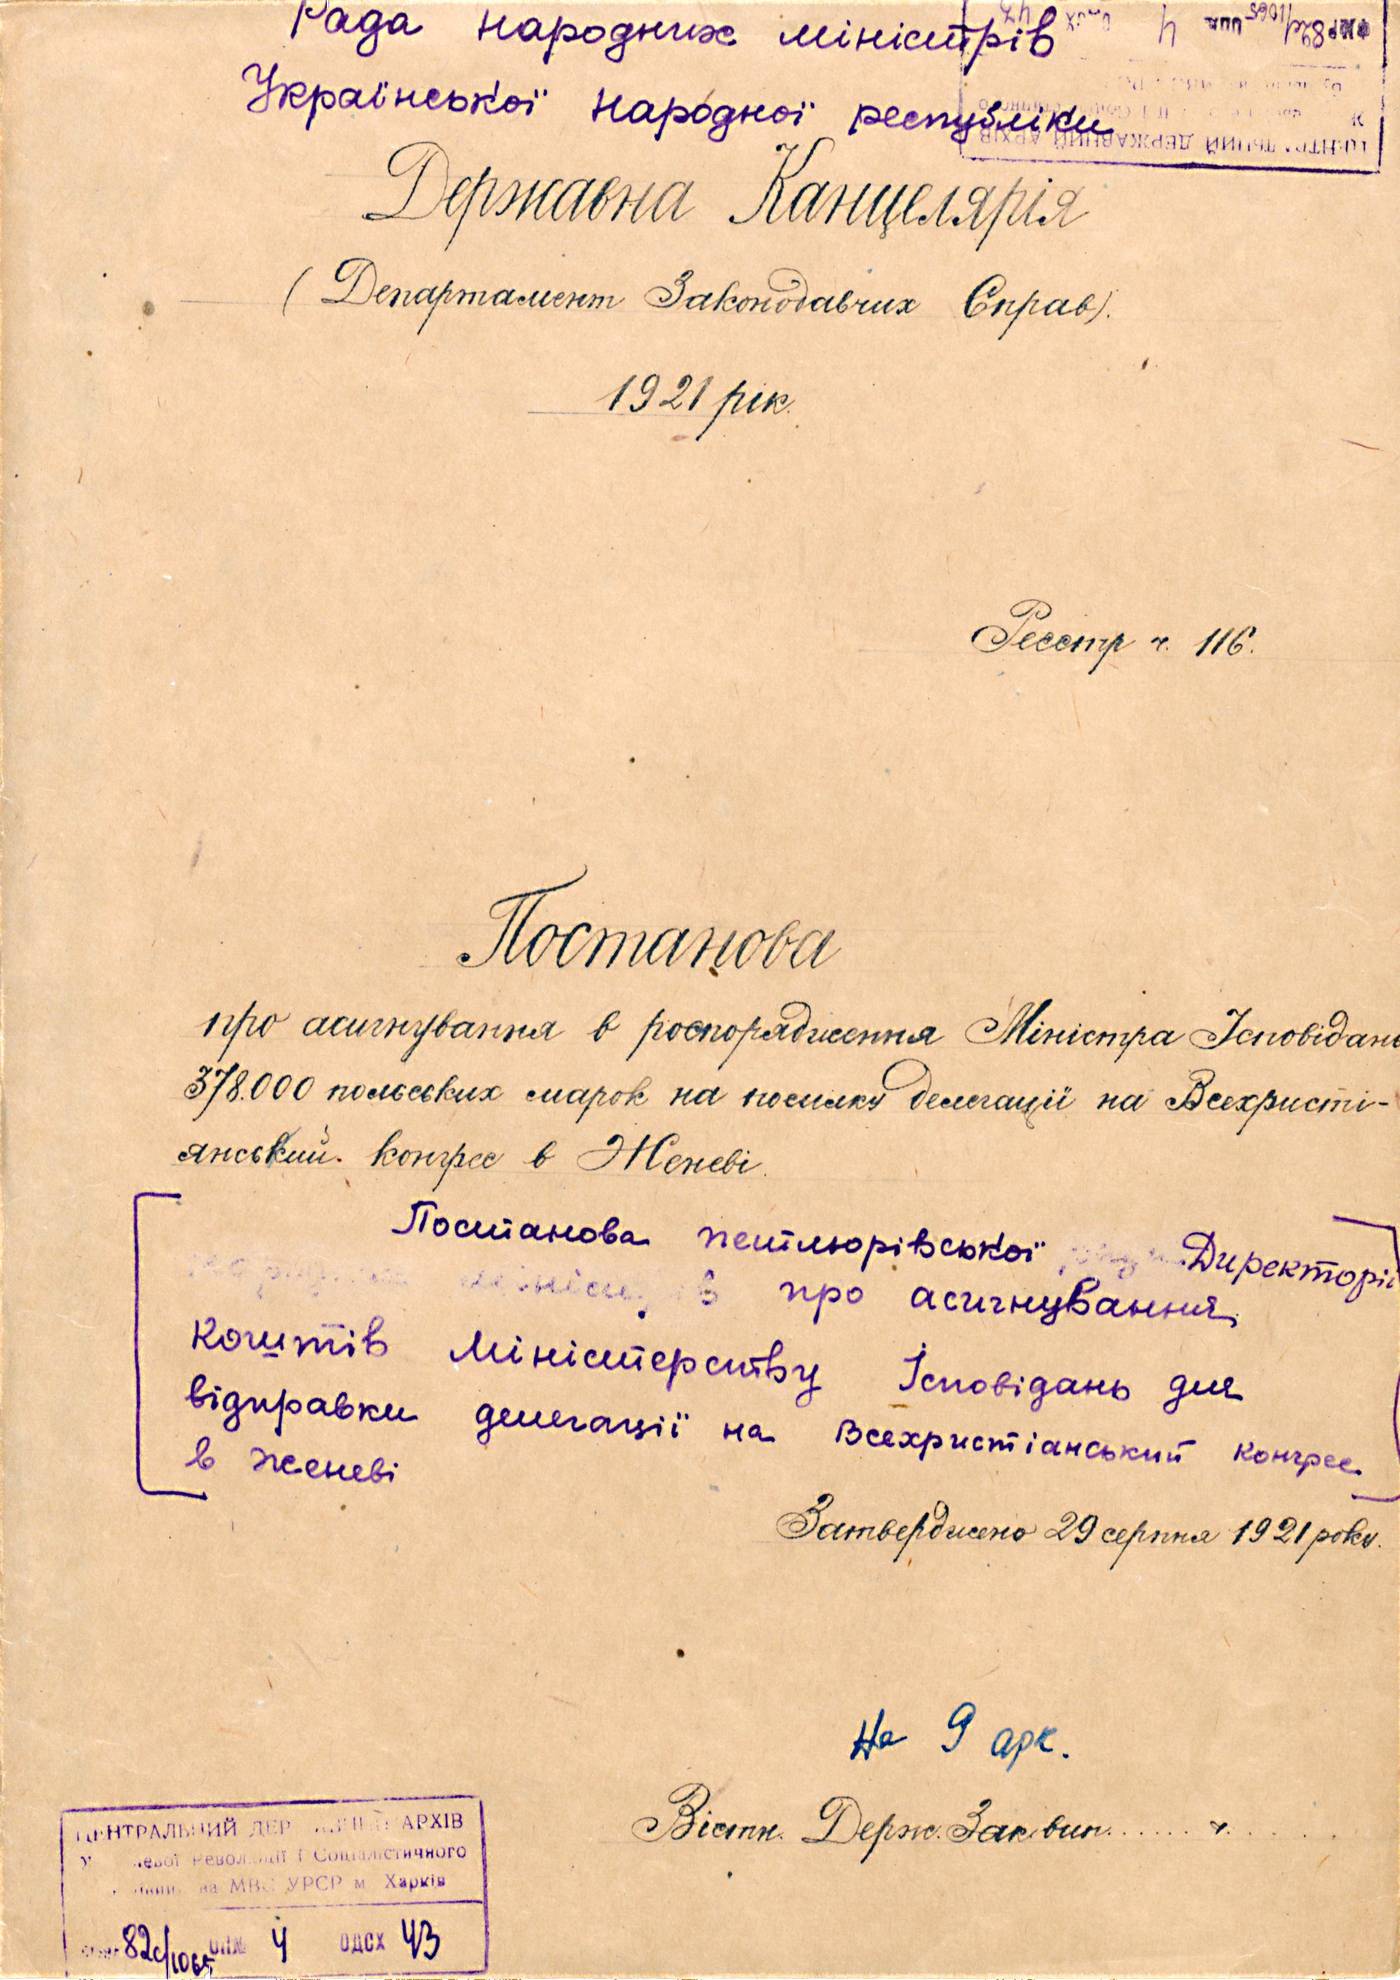 Рада народних міністрів
Української народної республіки
Державна Канцелярія
(Департамент Законодавчих Справ).
1921 рік.
Реєстр ч. 116.
Постанова
про асигнування в роспорядження Міністра Ісповідань
378.000 польських марок на посилку делегації на Всехристі-
янський конгрес в Женеві.
Постанова петлюрівської Директорії
про асигнування
коштів Міністерству Ісповідань для
відправки делегації на Всехристіанський конгрес
в Женеві
Затверджено 29 серпня 1921 року.
На 9 арк.
Вістн. Держ. Законів ч.
ЦЕНТРАЛЬНИЙ ДЕРЖАВНИЙ АРХІВ
Революції і Соціалістичного
МВС УРСР м. Харків
82с/1065 опис 4 ОДСХ 43
ЦЕНТРАЛЬНИЙ ДЕРЖАВНИЙ АРХІВ